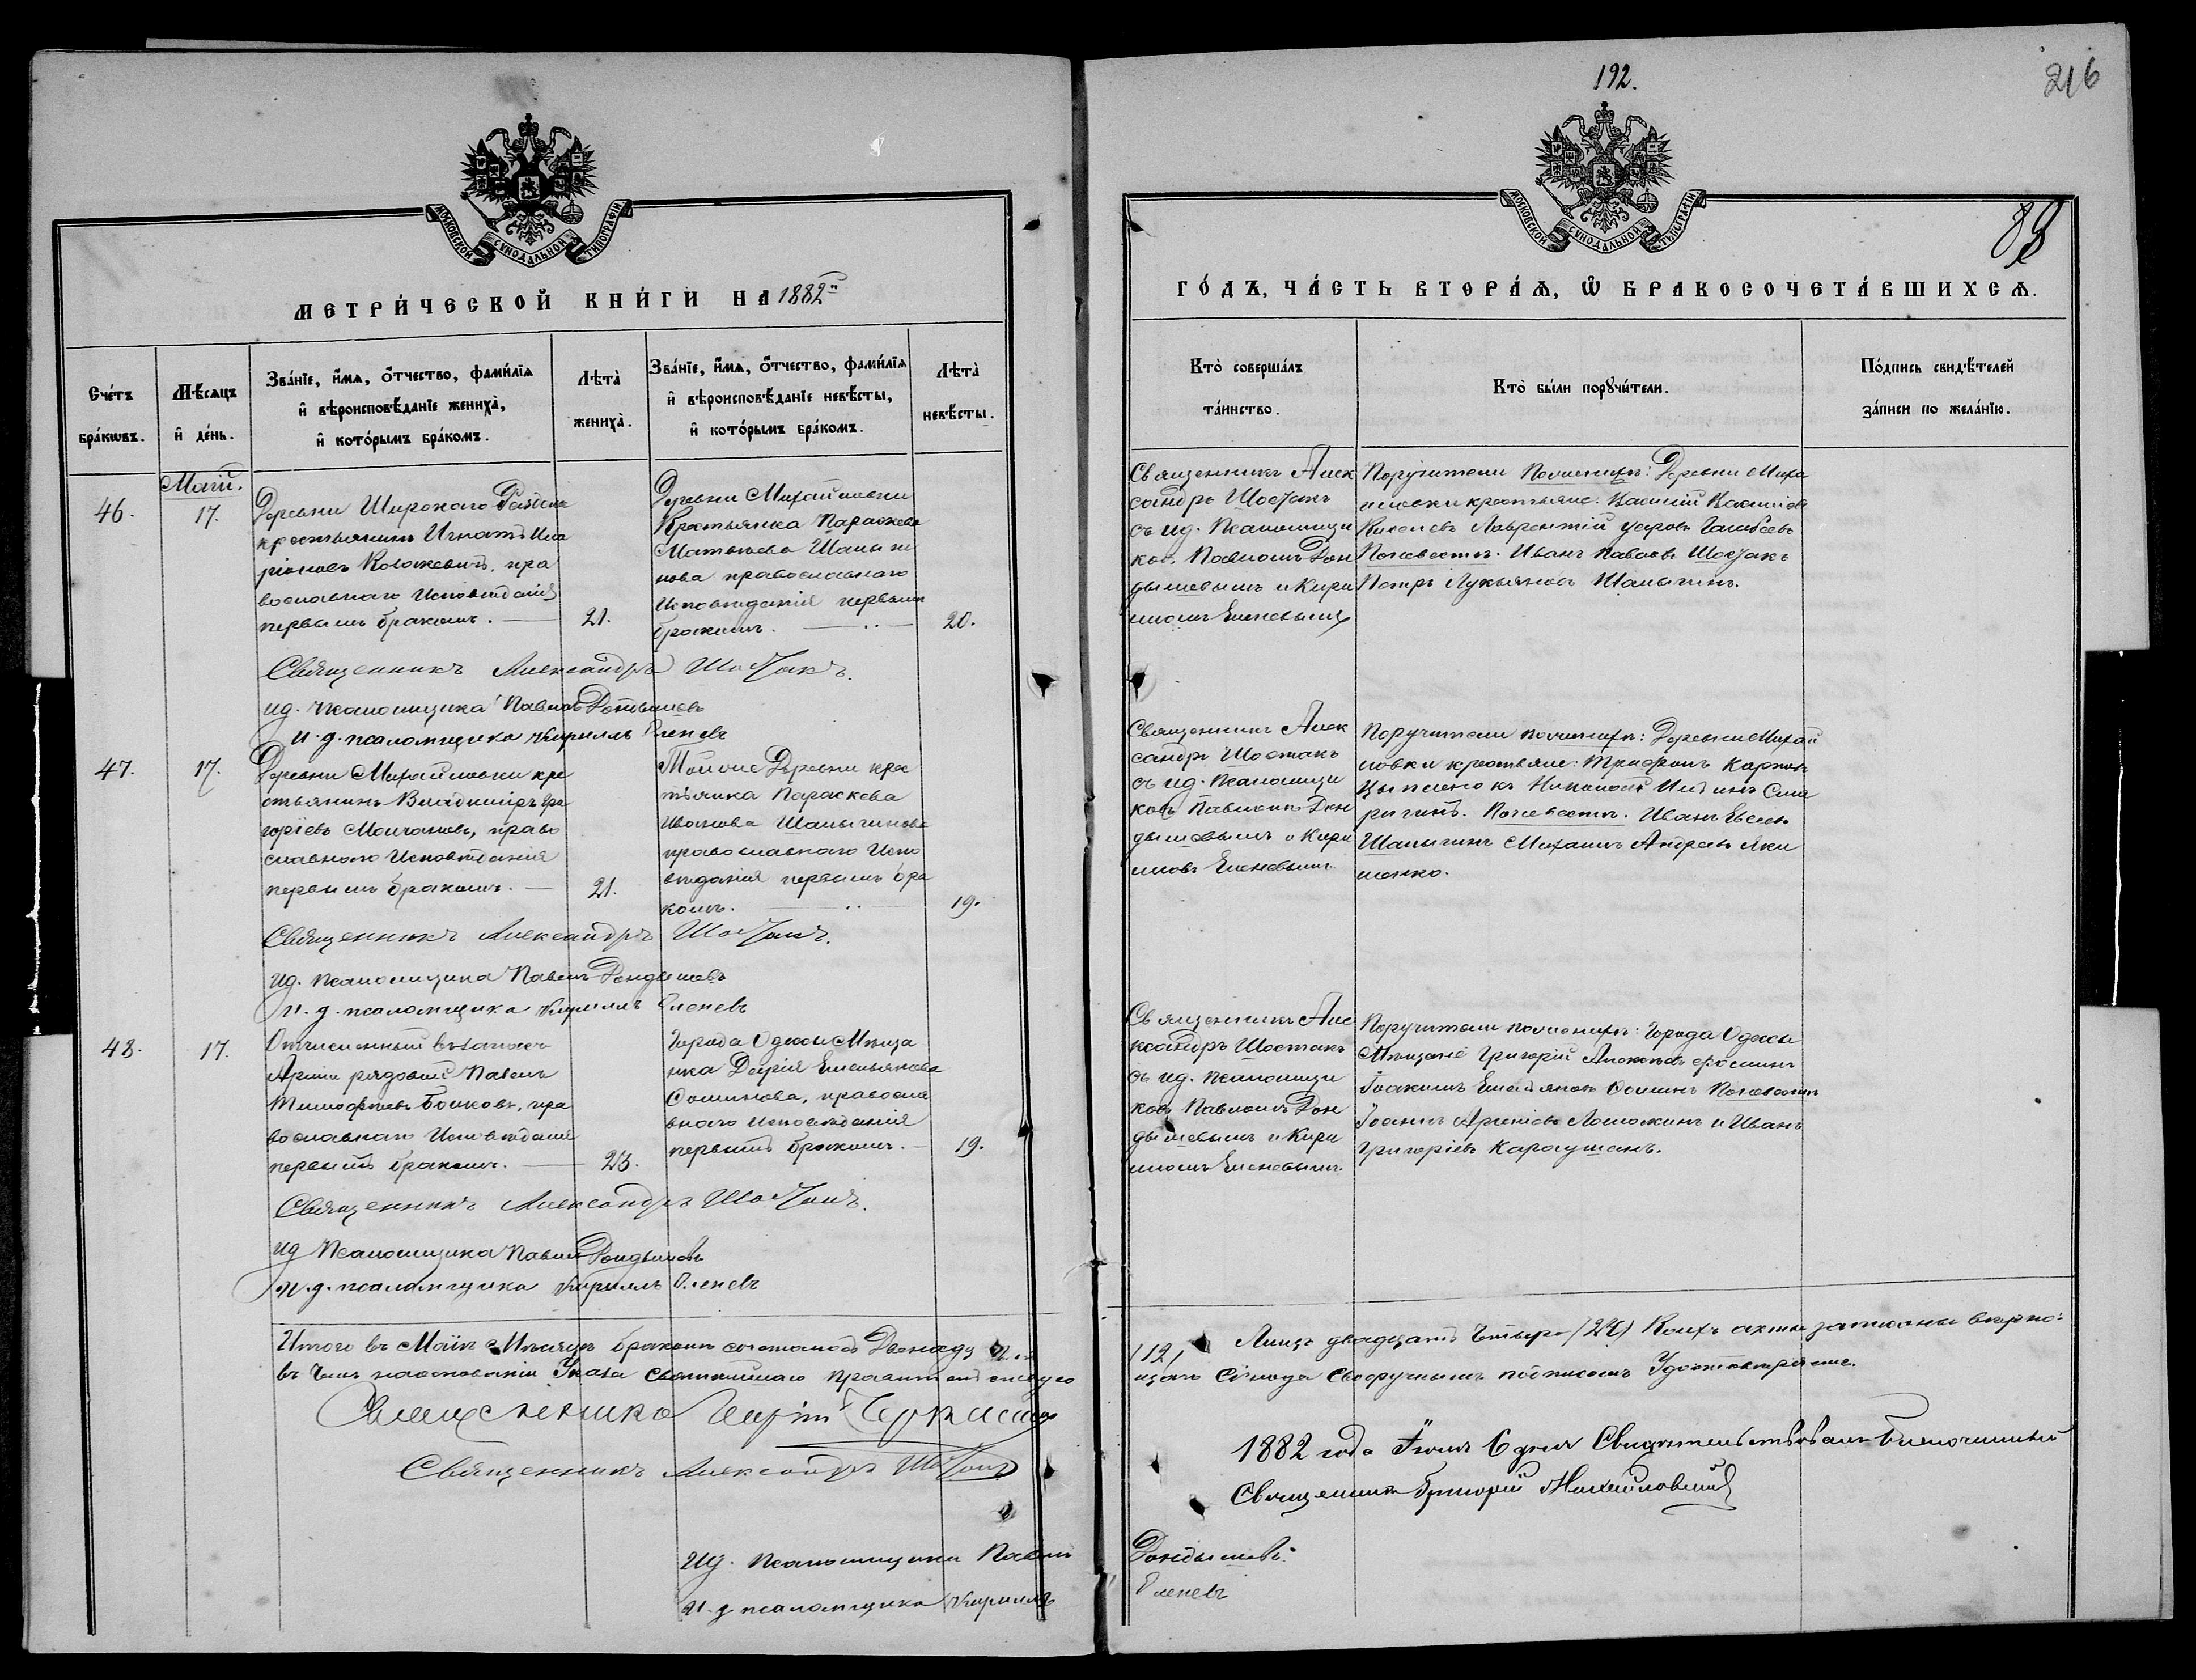 192.
216
83
МОСКОВСКОЙ СѴНОДАЛЬНОЙ ТИПОГРАФІИ
МОСКОВСКОЙ СѴНОДАЛЬНОЙ ТИПОГРАФІИ
МЕТРИ́ЧЕСКОЙ КНИ́ГИ НА 1882й
ГО́ДЪ, ЧА́СТЬ ВТОРА́Я, Ѡ БРАКОСОЧЕТА́ВШИХСЯ.
Сче́тъ бра́кѡвъ.
Мѣ́сяцъ и҆ де́нь.
Зва́нїе, и҆́мя, ѻ҆́тчество, фами́лїя
и҆ вѣроисповѣ́данїе жениха̀,
и҆ кото́рымъ бра́комъ.
Лѣта̀ жениха̀.
Зва́нїе, и҆́мя, ѻ҆́тчество, фами́лїя
и҆ вѣроисповѣ́данїе невѣ́сты,
и҆ кото́рымъ бра́комъ.
Лѣта̀ невѣ́сты.
Кто̀ соверша́лъ
та́инство.
Кто̀ бы́ли порꙋчи́тели.
По́дпись свидѣ́телей
за́писи по жела́нїю.
Май.
46.
17.
Деревни Широкаго
крестьянинъ Игнатъ Ила
ріоновъ Коложевитъ, пра
вославнаго Исповѣданія
первымъ бракомъ.
21.
Деревни Михайловки
Крестьянка Параскева
Матвѣева Шалыги
нова православнаго
Исповѣданія первымъ
бракомъ.
20.
Священникъ Алек
сандръ Шостакъ
съ ид. Псаломщи
ков. Павломъ Дон
дышевымъ и Кири
лломъ Еленевымъ
Поручители По женихѣ: Деревни Миха
иловки крестьяне: Василій Васильевъ
Лаврентій
По невѣстѣ. Иванъ Павловъ Шостакъ
Петръ Лукьяновъ Шалыгинъ.
Священникъ Александръ Шостакъ.
ид. псаломщика Павелъ Дондышевъ
и. д. псаломщика Кириллъ Еленевъ
47.
17.
Деревни Михайловки кре
стьянинъ Владиміръ Гри
горіевъ Молчановъ, право
славнаго Исповѣданія
первымъ бракомъ.
21.
Той же Деревни крес
тьянка Параскева
Иванова Шалыгинова
православнаго Испо
вѣданія первымъ бра
комъ.
19.
Священникъ Алек
сандръ Шостакъ
съ ид. Псаломщи
ковъ Павломъ Дон
дышевымъ и Кири
лловъ Еленевымъ
Поручители по женихѣ: Деревни Михай
ловки крестьяне: Трифонъ Карпов
По невѣстѣ. Иванъ
Шалыгинъ Михаилъ Андреевъ Яки
менко.
Священникъ Александръ Шостакъ.
ид. Псаломщика Павелъ Дондышевъ
и. д. псаломщика Кириллъ Еленевъ
48.
17.
Отчисленный въ запасъ
Арміи рядовой Павелъ
Тимофѣевъ Бойковъ, пра
вославнаго Исповѣданія
первымъ бракомъ.
23.
Города Одессы Мѣща
нка Дарія Емельянова
Сомикова, правосла
внаго Исповѣданія
первымъ бракомъ.
19.
Священникъ Але
ксандръ Шостакъ
съ ид. Псаломщи
ков. Павломъ Дон
дышевымъ и Кири
лломъ Еленевымъ.
Поручители по женихѣ: Города Одессы
Мѣщане Григорій
Іоакимъ Емельянов По невѣстѣ
Іоаннъ Арсеніевъ и Иванъ
Григоріевъ Караушанъ.
Священникъ Александръ Шостакъ.
ид Псаломщика Павелъ Дондышевъ
и. д. псаломщика Кириллъ Еленевъ
Итого въ Маѣ Мѣсяцѣ браковъ состоялось Двенадцать /12/ Лицъ двадцать четыре /24/ Коихъ акты записаны вѣрно:
въ чемъ на основаніи Указа Святѣйшаго Правительствую щаго Сѵнода Своеручнымъ подписомъ Удостовѣряемъ.
Священникъ
Священникъ Александръ Шостакъ
1882 года Іюня 6 дня Свидѣтельствовалъ Благочинный
Священникъ Григорій Михайловскій
ид. Псаломщика Павелъ Дондышевъ.
и. д. псаломщика Кириллъ Еленевъ